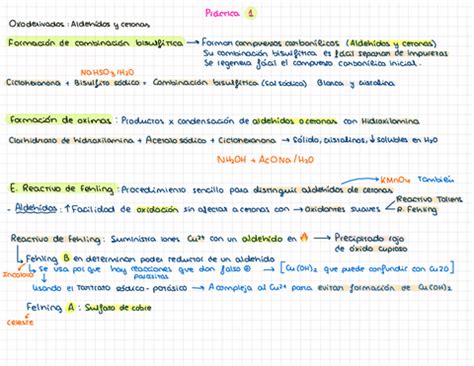 Práctica 1
Oxoderivados: Aldehídos y cetonas.
Formación de combinación bisulfítica → Forman compuestos carbonílicos (Aldehídos y cetonas)
Su combinación bisulfítica es fácil separar de impurezas
Se regenera fácil el compuesto carbonílico inicial.
NaHSO3/H2O
Ciclohexanona + Bisulfito sódico → Combinación bisulfítica (sal sódica) Blanca y cristalina
Formación de oximas: Productos x condensación de aldehídos o cetonas con Hidroxilamina
Clorhidrato de hidroxilamina + Acetato sódico + Ciclohexanona → Sólido, cristalinos, ↓ solubles en H2O
NH2OH + AcONa/H2O
KMnO4 también
E. Reactivo de Fehling: Procedimiento sencillo para distinguir aldehídos de cetonas
- Aldehídos: ↑ Facilidad de oxidación sin afectar a cetonas con → Oxidantes suaves
Reactivo Tollens
R. Fehling
Reactivo de Fehling: Suministra iones Cu2+ con un aldehído en 🔥 → Precipitado rojo
de óxido cuproso
↳ Fehling B en determinan poder reductor de un aldehído
Incoloro
↳ Se usa porque hay reacciones que dan falso ⊕ → [Cu(OH)2 que puede confundir con Cu2O]
parásitas
Usando el tartrato sódico-potásico → Acompleja al Cu2+ para evitar formación de Cu(OH)2
Felning A: Sulfato de cobre
celeste